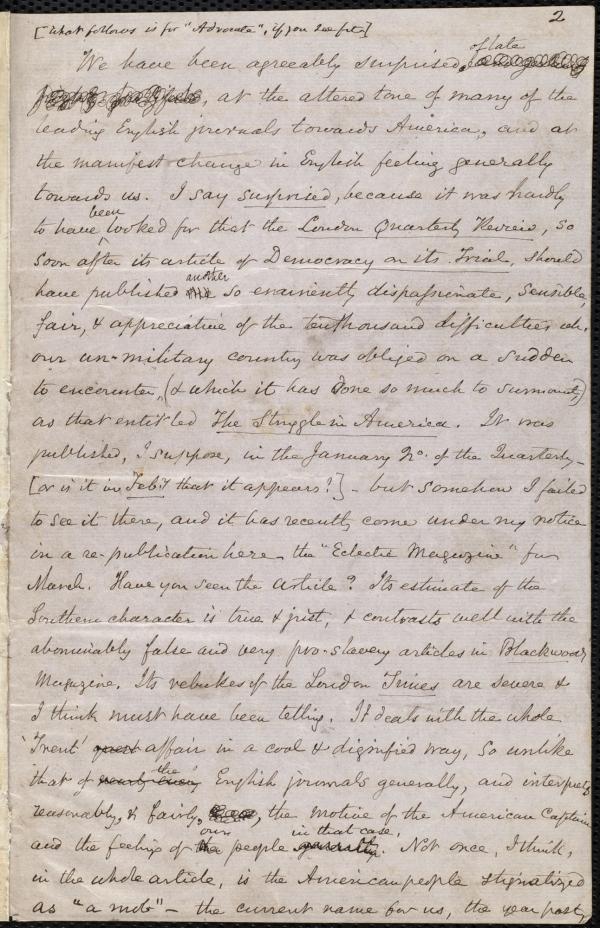 2
[What follows is for "Advocate", if you see fit]
We have been agreeably surprised, of late
, at the altered tone of many of the
leading English journals towards America, and at
the manifest change in English feeling generally
towards us. I say surprised, because it was hardly
to have been looked for that the London Quarterly Review, so
soon after its article of Democracy on its Trial, should
have published another so eminently dispassionate, sensible,
fair, & appreciative of the ten thousand difficulties wh.
our un-military country was obliged on a sudden
to encounter, (& which it has done so much to surmount,)
as that entitled The Struggle in America. It was
published, I suppose, in the January No. of the Quarterly –
[or is it in Feby that it appears?] – but somehow I failed
to see it there, and it has recently come under my notice
in a re-publication here – the "Eclectic Magazine" for
March. Have you seen the article? Its estimate of the
Southern character is true & just, & contrasts well with the
abominably false and very pro-slavery articles in Blackwood's
Magazine. Its rebukes of the London Times are severe &
I think must have been telling. It deals with the whole
'Trent' affair in a cool & dignified way, so unlike
that of the English journals generally, and interprets
reasonably, & fairly, the motive of the American Captain
and the feeling of our people in that case. Not once, I think,
in the whole article, is the American people stigmatized
as "a mob" – the current name for us, the year past,